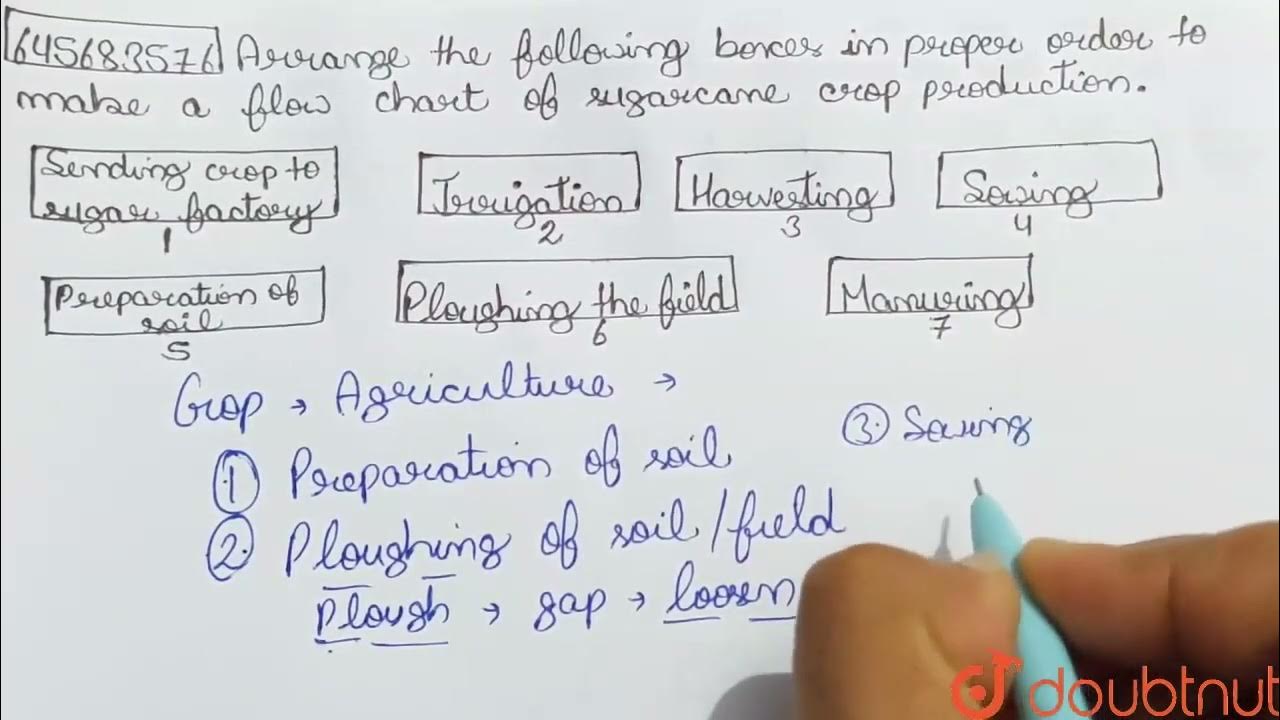 645683576 Arrange the following boxes in proper order to
make a flow chart of sugarcane crop production.
Sending crop to
sugar factory
1
Irrigation
2
Harvesting
3
Sowing
4
Preparation of
soil
5
Ploughing the field
6
Manuring
7
Crop → Agriculture →
① Preparation of soil
②. Ploughing of soil/field
Plough → gap → loosen
③. Sowing
doubtnut